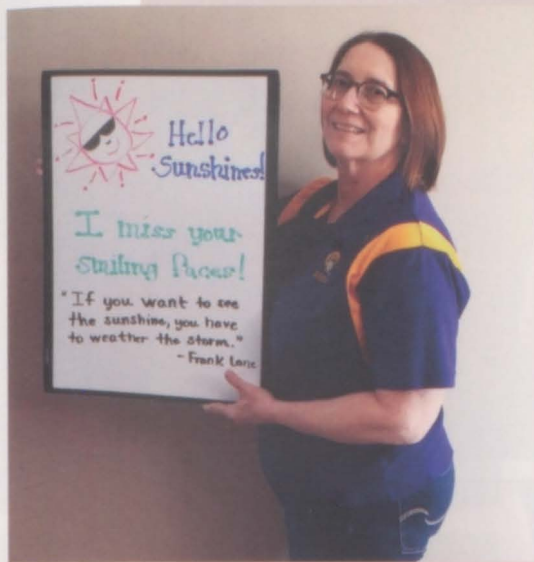 Hello
Sunshines!
I miss your
smiling faces!
"If you want to see
the sunshine, you have
to weather the storm."
- Frank Lane